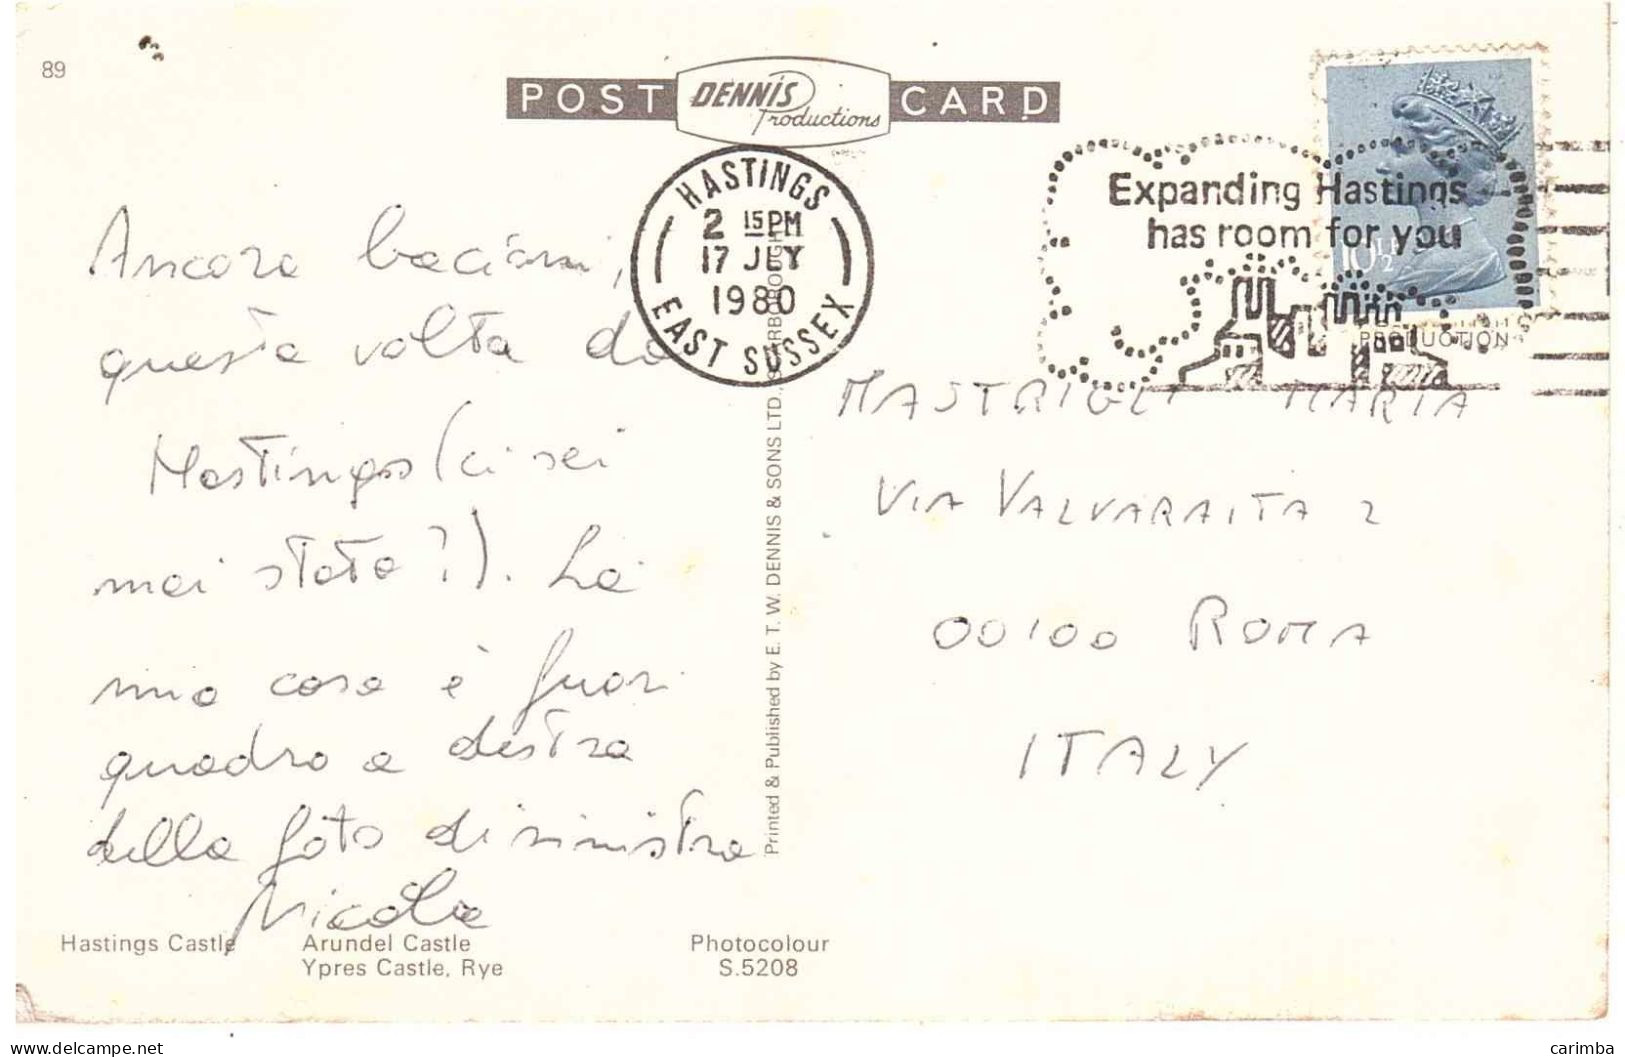 89
POST DENNIS Productions CARD
HASTINGS
2 15 PM
17 JLY
1980
EAST SUSSEX
Expanding Hastings
has room for you
10½P
PRODUCTION
Ancora bacioni,
questa volta da
Hastings (ci sei
mai stata?). La
mia casa è fuori
quadro a destra
della foto di sinistra
Nicola
MASTRIGLI MARIA
VIA VALVARAITA 2
00100 ROMA
ITALY
Printed & Published by E. T. W. DENNIS & SONS LTD. SCARBOROUGH
Hastings Castle
Arundel Castle
Ypres Castle, Rye
Photocolour
S.5208
delcampe.net
carimba